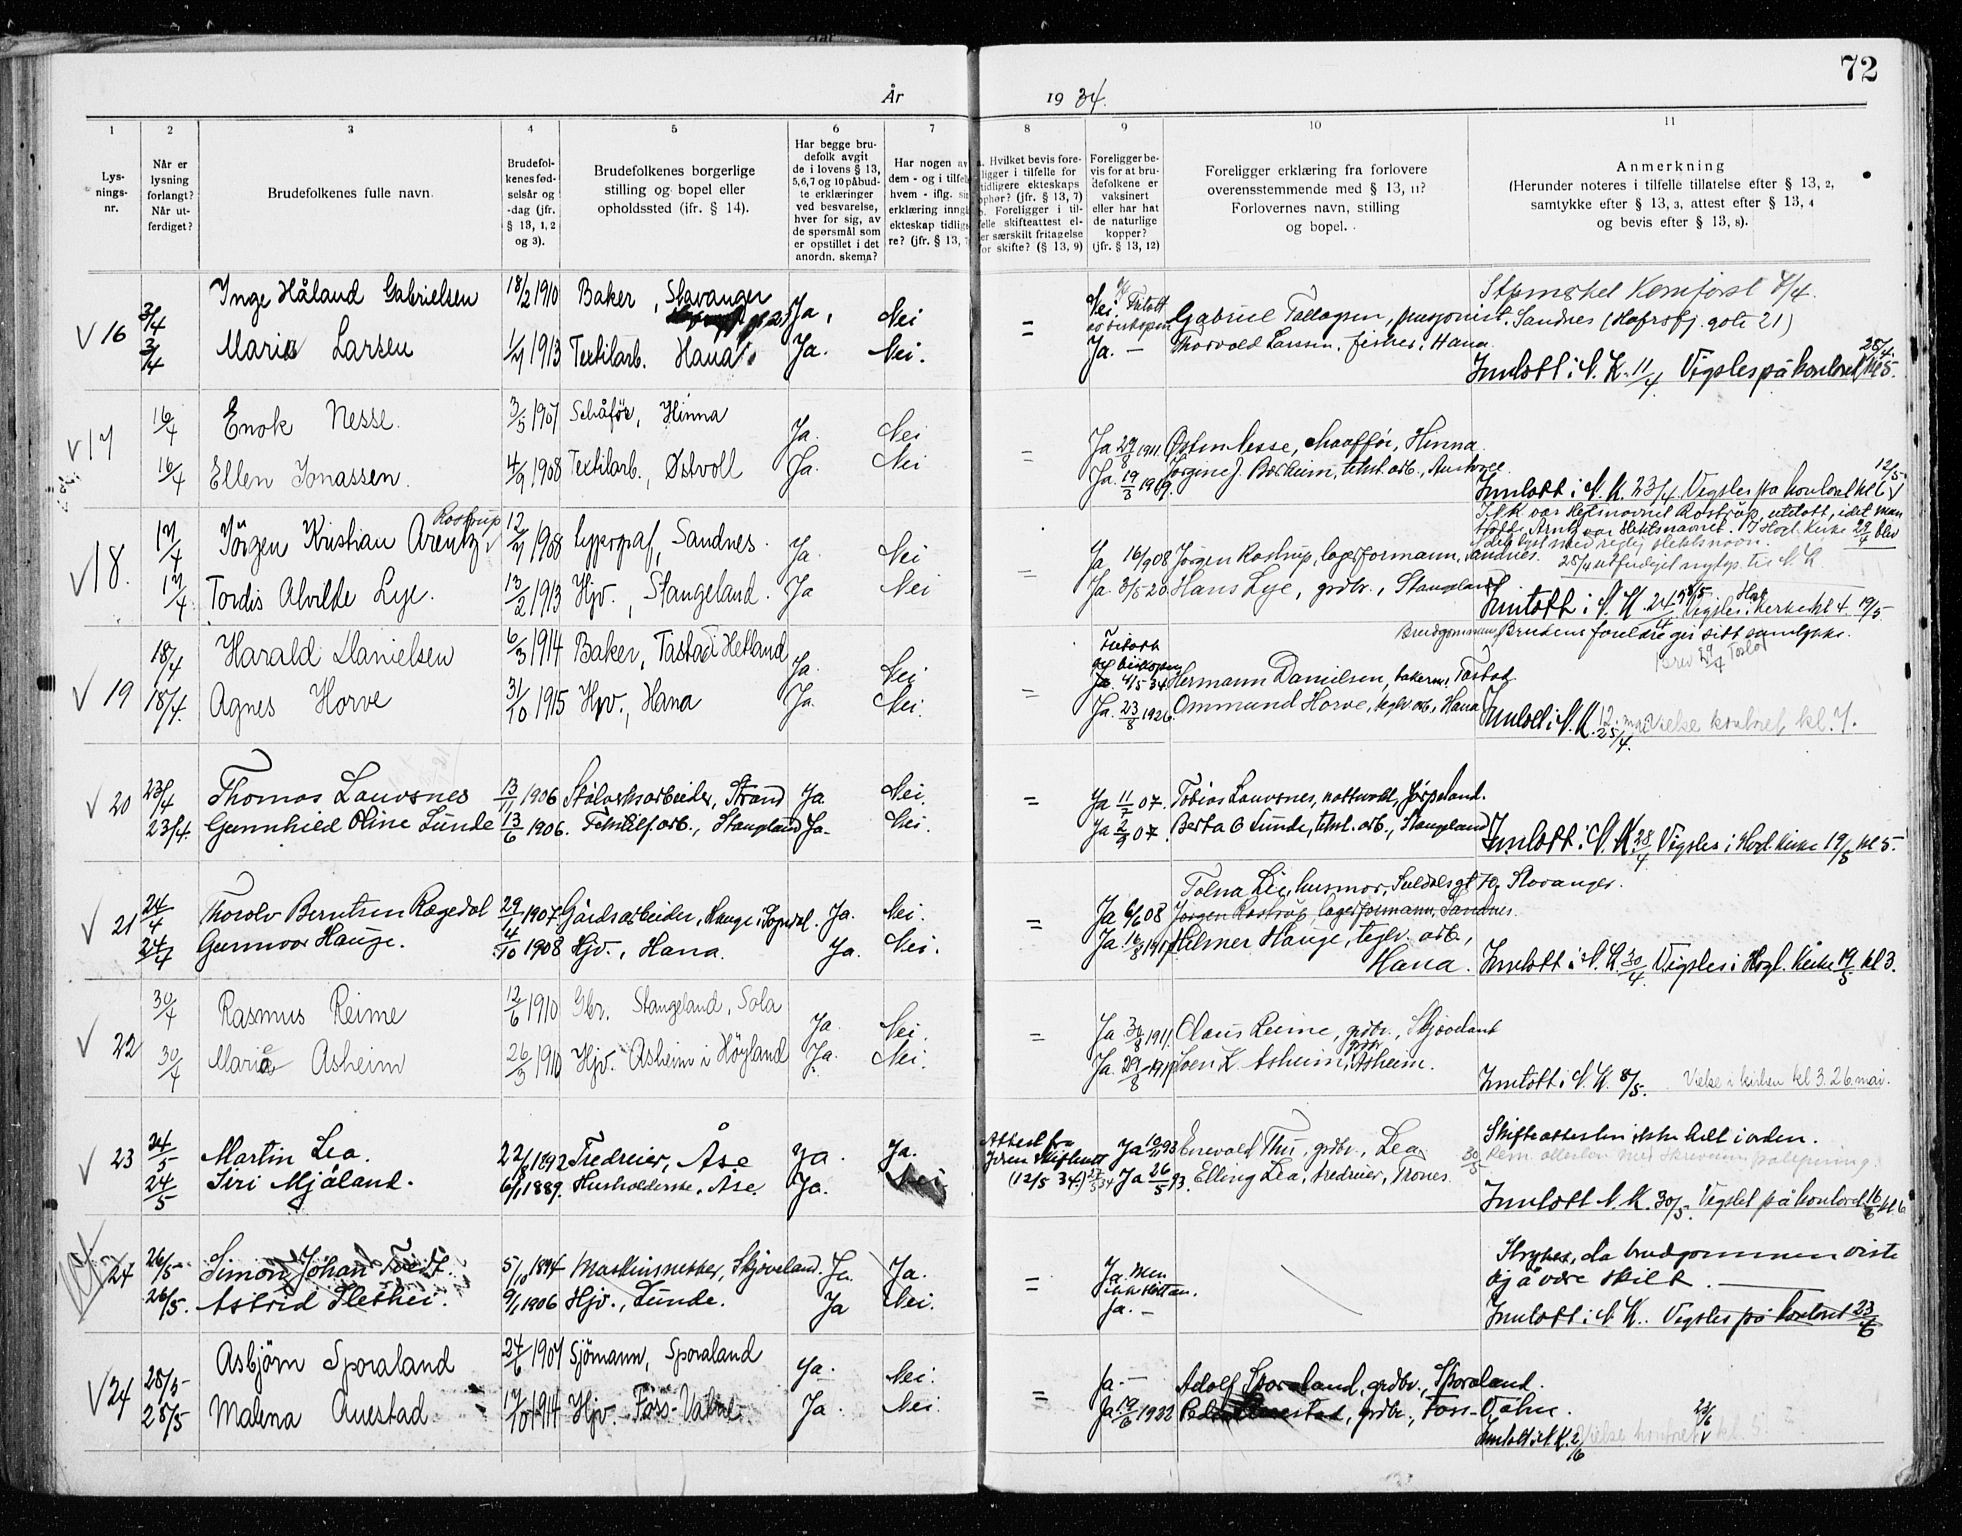 72
År 1934.
1 2 3 4 5 6 7 8 9 10 11
Lys-
nings-
nr.
Når er
lysning
forlangt?
Når ut-
ferdiget?
Brudefolkenes fulle navn.
Brudefol-
kenes fød-
selsår og
-dag (jfr.
§ 13, 1, 2
og 3).
Brudefolkenes borgerlige
stilling og bopel eller
opholdssted (jfr. § 14).
Har begge bru-
defolk avgit
de i lovens § 13,
5,6,7 og 10 påbud-
te erklæringer
ved besvarelse,
hver for sig, av
de spørsmål som
er opstillet i det
anordn. skema?
Har nogen av
dem - og i tilfelle
hvem - iflg. si
erklæring inngå
ekteskap tidlig
re? (jfr. § 13, 7
a. Hvilket bevis fore-
ligger i tilfelle for
tidligere ekteskaps
ophør? (jfr. § 13, 7)
b. Foreligger i til-
felle skifteattest el-
ler særskilt fritagelse
for skifte? (§ 13, 9)
Foreligger be-
vis for at bru-
defolkene er
vaksinert
eller har hat
de naturlige
kopper?
(jfr. § 13, 12)
Foreligger erklæring fra forlovere
overensstemmende med § 13, 11?
Forlovernes navn, stilling
og bopel.
Anmerkning
(Herunder noteres i tilfelle tillatelse efter § 13, 2,
samtykke efter § 13, 3, attest efter § 13, 4
og bevis efter § 13, 8).
V 16 3/4 Inge Håland Gabrielsen 18/2 1910 Baker, Stavanger Ja, Nei = Nei. Gabriel Tallagsen, pensjonist, Sandnes (Hafrsfj. gate 21)
3/4 Marie Larsen 1/7 1913 Textilarb. Hana Ja. Nei. Ja. — Thorvald Larsen, fisker, Hana
Innlatt i N. K. 11/4 Vigsles på kontoret 28/4 kl 5.
V 17 16/4 Enok Nesse. 3/5 1907 Schåfør, Hinna Ja. Nei = Ja 29/8 1911. Østen Nesse, chauffør, Hinna.
16/4 Ellen Jonassen. 4/9 1908 Textilarb., Østvoll Ja. Nei Ja. 19/3 1909. Jorgine J. Berkum, tekst. arb., Austvoll
Innlatt i N. K. 23/4 Vigsles på kontoret kl 6 12/5 V
V 18. 17/4 Jørgen Kristian Arentz Rostrup 12/7 1908 typograf, Sandnes. Ja Nei = Ja 16/9 08 Jørgen Rostrup, lagerformann, Sandnes.
17/4 Tordis Alvilde Lye. 13/2 1913 Hjv., Stangeland. Ja Nei Ja. 3/5 20. Hans Lye, grdbr., Stangeland
V 19 18/4 Harald Danielsen 6/3 1914 Baker, Tastad i Hetland Ja. Nei = 4/5 34 Hermann Danielsen, bakerm., Tastad
Brudgommens Brudens foreldre gir sitt samtykke.
18/4. Agnes Horve 31/10 1915 Hjv., Hana Ja. Nei. Ja. 23/8 1926. Ommund Horve, teglv. arb., Hana
Innlatt i N. K. 25/4. 12. mai Vielse kontoret kl. 7.
V 20 23/4 Thomas Lauvsnes 13/11 1906 Stålverksarbeider, Strand Ja. Nei. = Ja 11/7 07. Tobias Lauvsnes, nattvakt, Jørpeland.
23/4. Gunnhild Oline Lunde 13/6 1906. Tekstilf. arb., Stangeland Ja. Nei. Ja 2/9 07. Berta O Lunde, tekst. arb., Stangeland
Innlatt i N. K. 28/4 Vigsles i Høgl. kirke 19/5 kl 5.
V 21 24/4 Thorolv Berntsen Rægedal 29/1 1907. Gårdsarbeider, Hauge i Sogndal. Ja. Nei. = Ja 6/6 08 Tolna Lie, husmor, Suldalsgt 10, Stavanger.
Jørgen Rostrup, lagerformann, Sandnes.
24/4 Gunnvor Hauge. 4/10 1908 Hjv., Hana. Ja. Nei. Ja. Helmer Hauge, teglv. arb.,
Hana. Innlatt i N. K. 30/4. Vigsles i Høgl. kirke 19/5 kl 3.
V 22 30/4 Rasmus Reime 12/6 1910 Gbr. Stangeland, Sola Ja. Nei. = Ja 1911. Claus Reime, grdbr., Skjæveland
30/4 Marie Asheim 26/3 1910 Hjv. Asheim i Høyland Ja. Nei. Ja. 29/8 Sven K Asheim, grdbr Asheim.
Innlatt i N. K. 8/5. Vielse i kirken kl 3. 26. mai.
V 23 24/5 Martin Lea. 22/ 1892 Tredreier, Åse Ja. Ja. Attest fra Jæren skifterett (12/5 34.) Ja 19/11 93 Enevald Thu, grdbr., Lea
Skifteattesten ikke helt i orden.
24/5 Siri Mjåland. 6/1 1889. Husholderske, Åse. Ja. Nei Ja 26/5 93. Elling Lea, tredreier, Trones
Innlatt N. K. 30/5. Vigslet på kontoret 16/6 kl 6
24 26/5 Simon Johan Tvedt. 5/10 1894 Maskinsnekker, Skjæveland. Ja. Ja. = Ja. Men
Strykes, da brudgommen viste
sig å være skilt.
26/5. Astrid Slethei. 9/1 1906 Hjv., Lunde. Ja Nei. Ja. —
Innlatt i N. K. Vigsles på kontoret 23/6
V 24 28/5 Asbjørn Sporaland 24/6 1907 Sjømann, Sporaland Ja. Nei. = Ja. — Adolf Sporaland, grdbr., Sporaland.
28/5 Malena Auestad 17/10 1914 Hjv. Foss-Vatne. Ja. Nei. Ja 19/6 1922 Auestad, grdbr., Foss-Vatne.
Innlatt i N. K. 2/6 Vielse kontoret kl. 5. 23/6 V